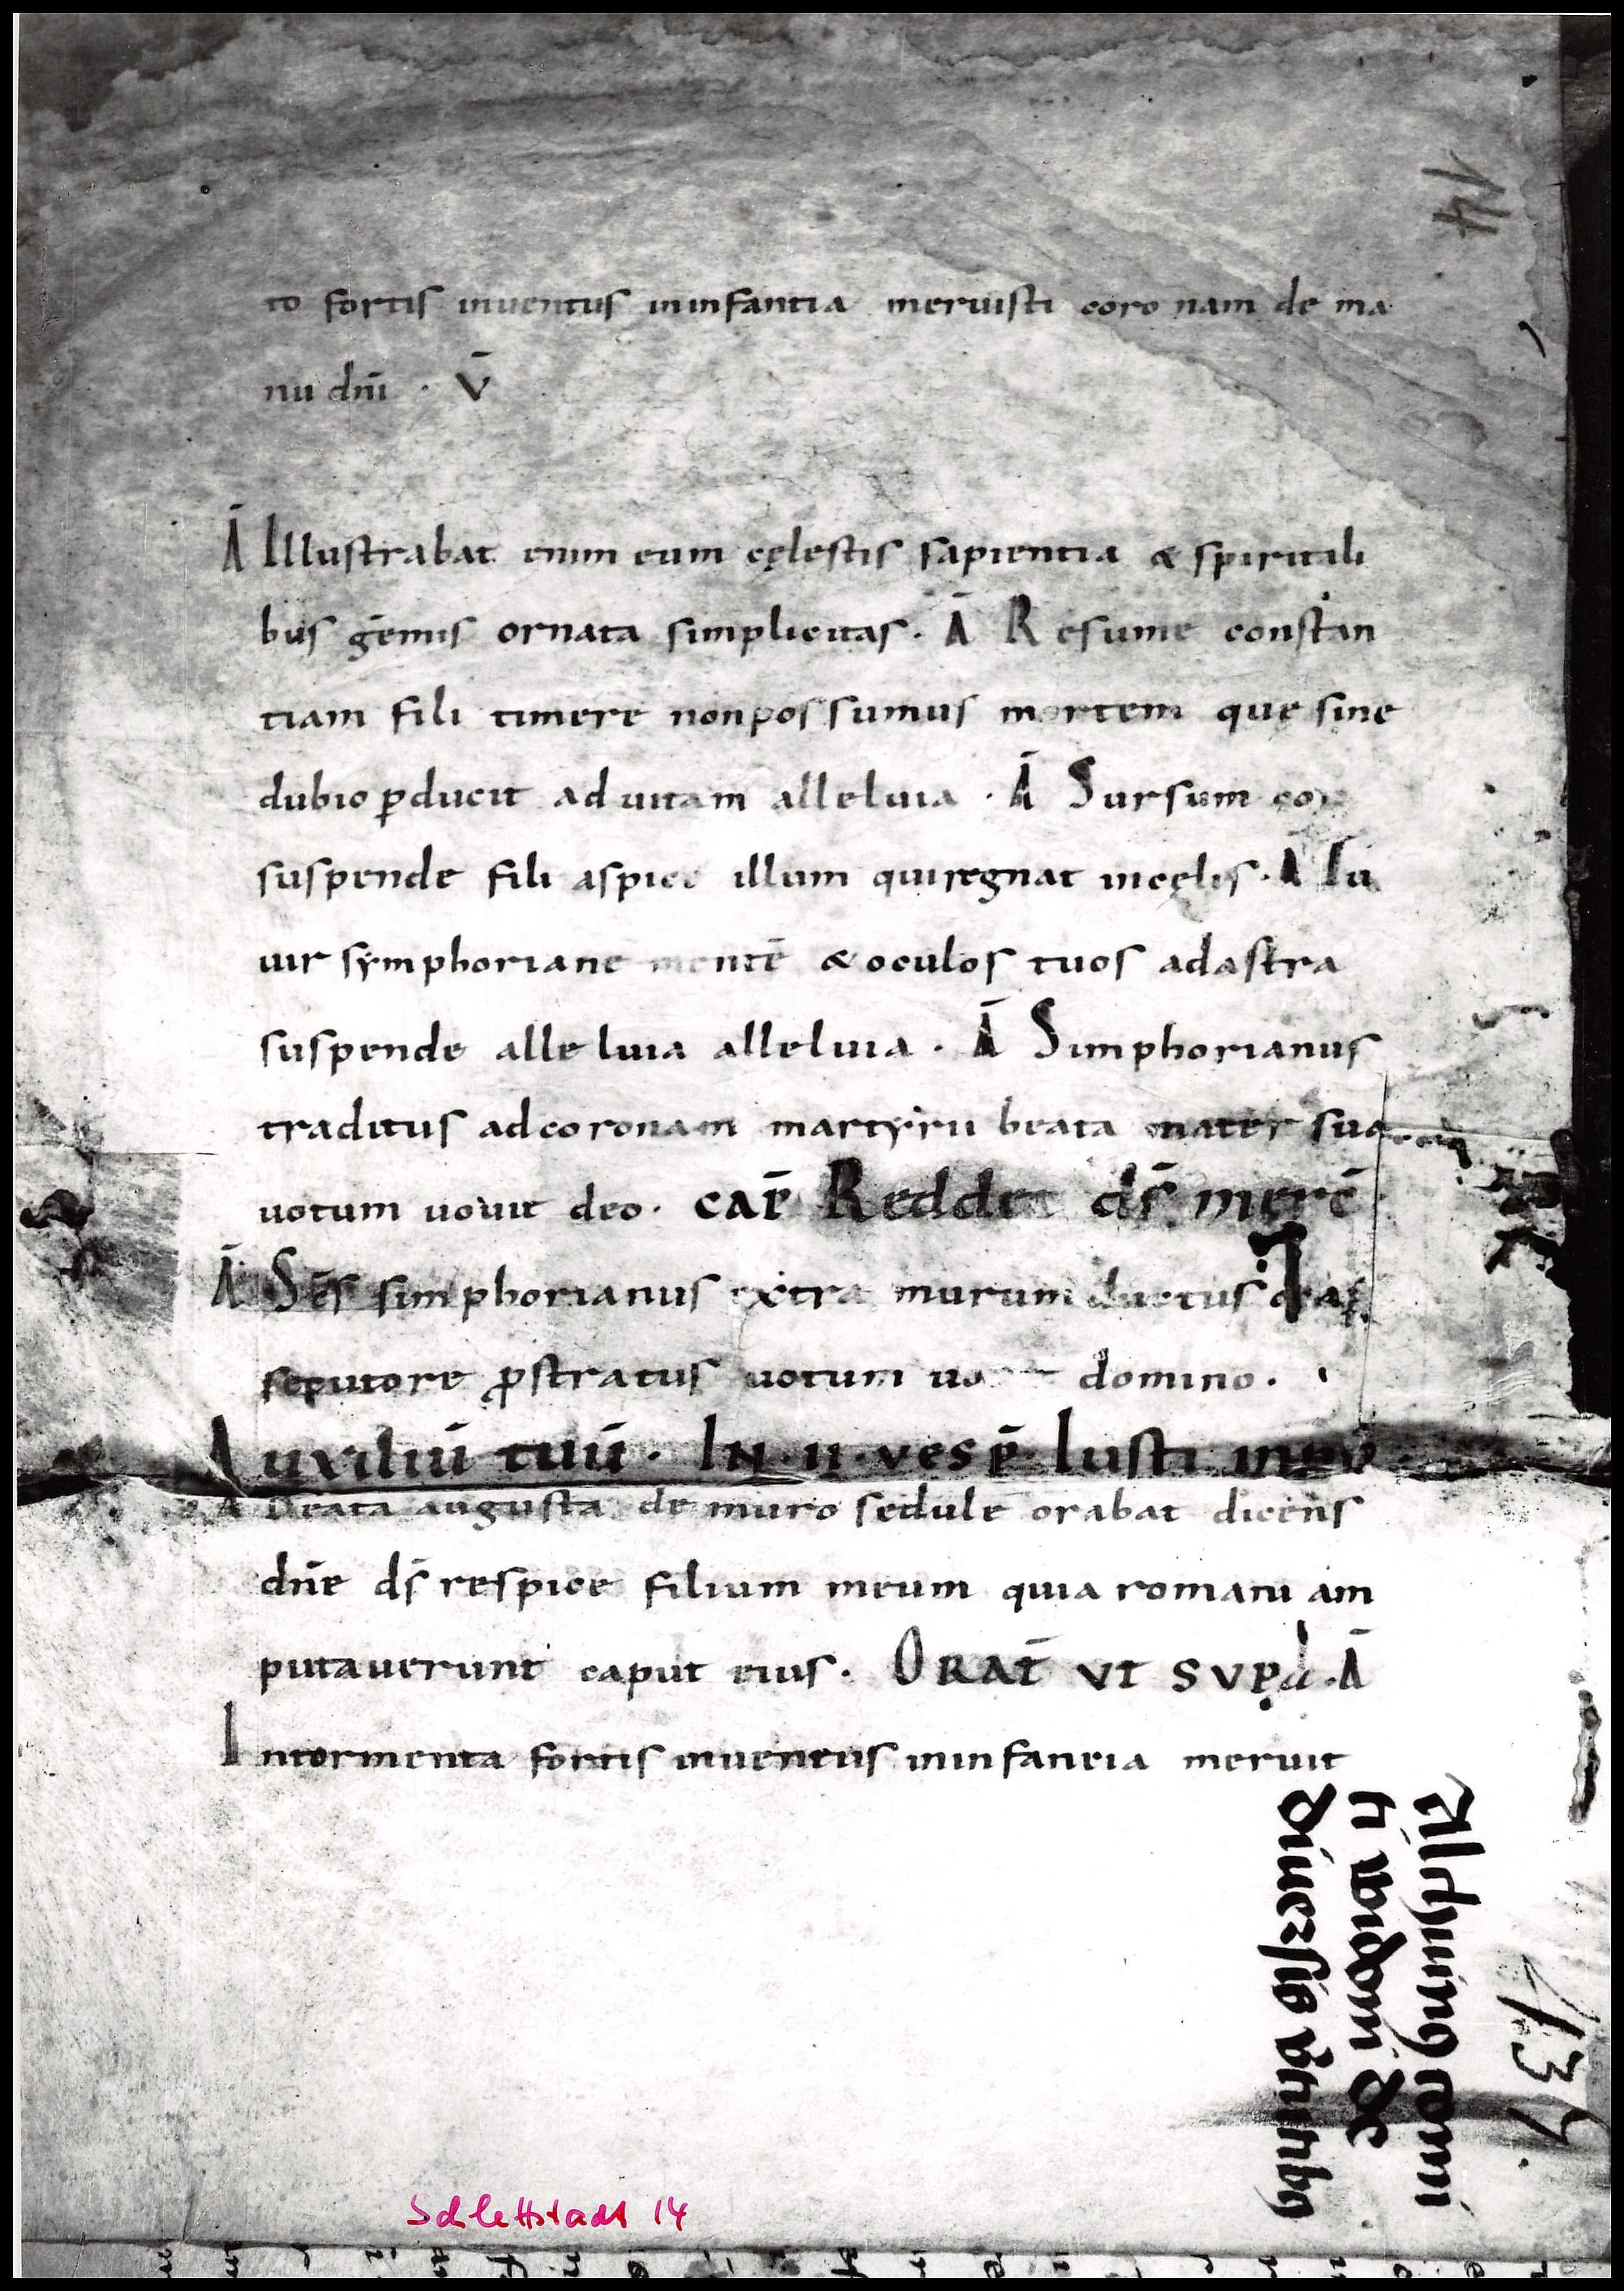 14
to fortis inventus ininfantia meruisti coro nam de ma
nu dnī · v̄
Ā Illustrabat enim eum cęlestis sapientia & spiritali
bus gēmis ornata simplicitas. Ā Resume constan
tiam fili timere nonpossumus mortem quę sine
dubio ꝑducit ad uitam alleluia · Ā Sursum cor
suspende fili aspice illum quiregnat incęlis. Ā Tu
uir symphoriane mentē & oculos tuos adastra
suspende alleluia alleluia . Ā Simphorianus
traditus adcoronam martyrii beata mater sua
uotum uouit deo. CAP̄ Reddet ds̄ mercē
Ā Scs̄ simphorianus extra murum ductus
ꝓstratus uotum domino.
Auxiliū tuū. IN. II. VESP̄. Iusti
Ā Beata augusta de muro sedule orabat dicens
dn̄e ds̄ respice filium meum quia romani am
putauerunt caput eius. ORAT̄ VT SVP. Ā
Intormenta fortis inuentus ininfantia meruit
137.
Schlettstadt 14